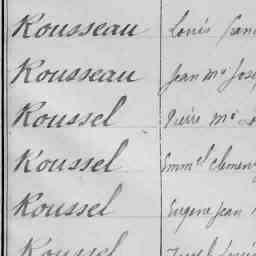 Rousseau Louis
Rousseau Jean Me
Roussel Pierre Me
Roussel Emmel Clement
Roussel Eugène Jean
Roussel